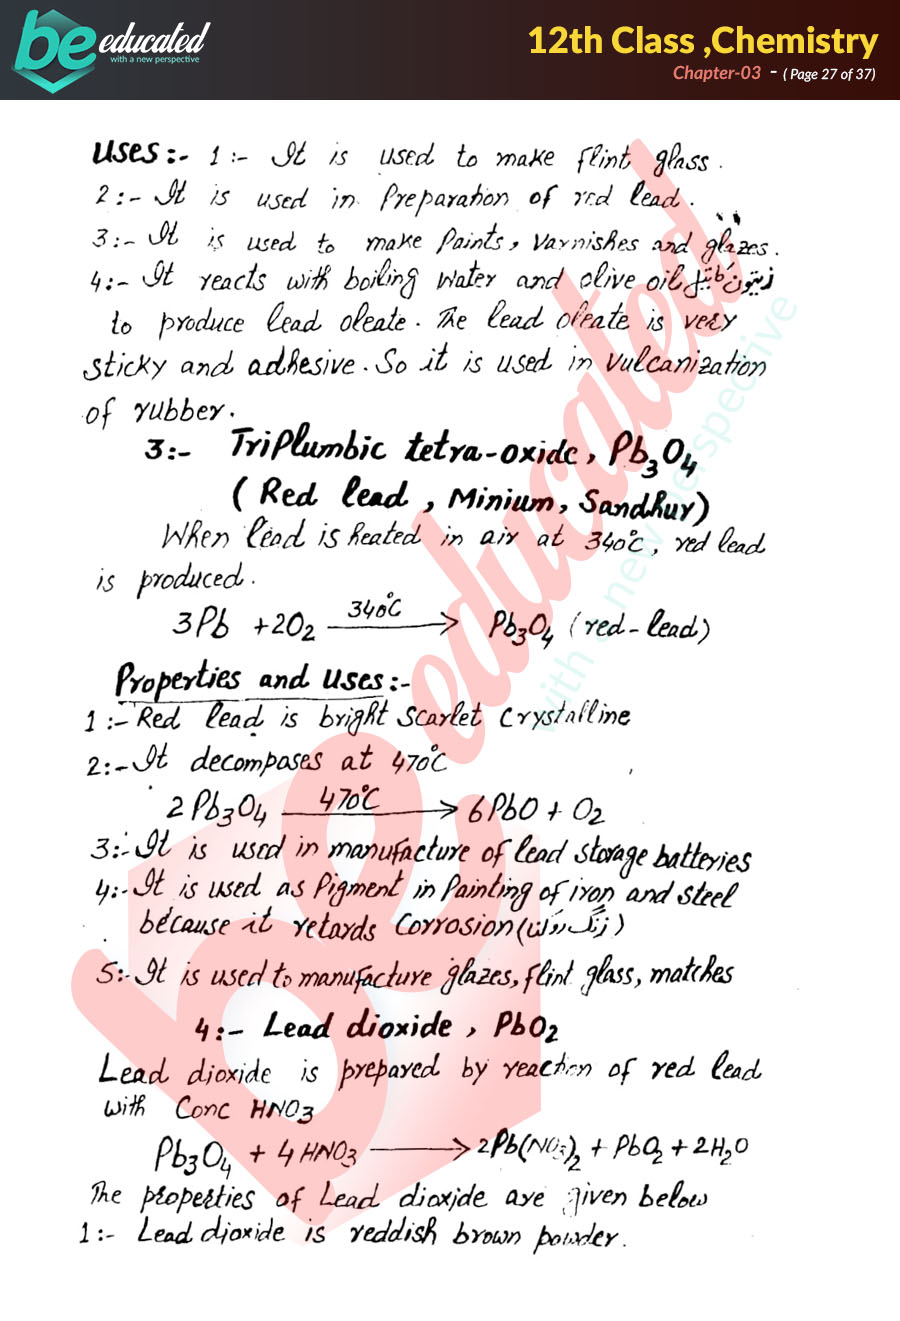 be educated
with a new perspective
12th Class ,Chemistry
Chapter-03 - ( Page 27 of 37)
Uses:- 1:- It is used to make flint glass.
2:- It is used in Preparation of red lead.
3:- It is used to make Paints, Varnishes and glazes.
4:- It reacts with boiling Water and olive oil زیتون کا تیل
to produce lead oleate. The lead oleate is very
sticky and adhesive. So it is used in Vulcanization
of rubber.
3:- Triplumbic tetra-oxide, Pb3O4
( Red lead , Minium, Sandhur)
When lead is heated in air at 340°C, red lead
is produced.
3Pb +2O2 340°C → Pb3O4 (red-lead)
Properties and uses:-
1:- Red lead is bright Scarlet Crystalline
2:- It decomposes at 470°C
2 Pb3O4 470°C → 6PbO + O2
3:- It is used in manufacture of lead storage batteries
4:- It is used as Pigment in Painting of iron and steel
because it retards Corrosion ( زنگ )
5:- It is used to manufacture glazes, flint glass, matches
4:- Lead dioxide, PbO2
Lead dioxide is prepared by reaction of red lead
with Conc HNO3
Pb3O4 + 4 HNO3 → 2Pb(NO3)2 + PbO2 + 2H2O
The properties of Lead dioxide are given below
1:- Lead dioxide is reddish brown powder.
be educated
with a new perspective